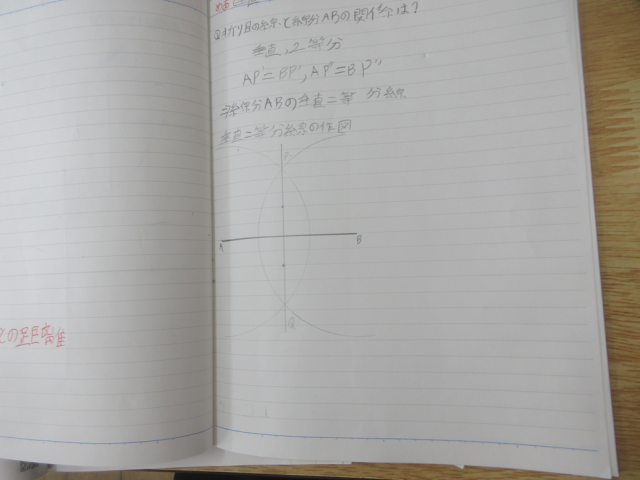 Q.おり目の線と線分ABの関係は?
垂直,2等分
AP'=BP',AP''=BP''
⇒線分ABの垂直二等分線
垂直二等分線の作図
P
A B
Q
との距離